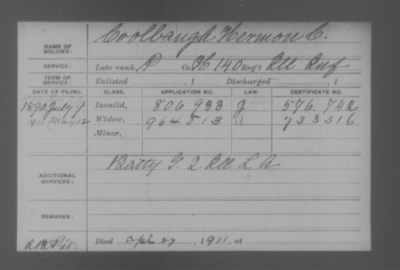 NAME OF SOLDIER: Coolbaugh Hermon C.
SERVICE: Late rank, P Co. H 140 Reg't Ill Inf
TERM OF SERVICE: Enlisted , 1 Discharged , 1
DATE OF FILING. CLASS. APPLICATION NO. LAW. CERTIFICATE NO.
1890 July 9 Invalid, 806 983 g 576.742
1911 May 12 Widow, 964 813 733316
Minor,
ADDITIONAL SERVICES: Batty G 2 Ill L A
REMARKS:
Died Apl 27 , 1911, at